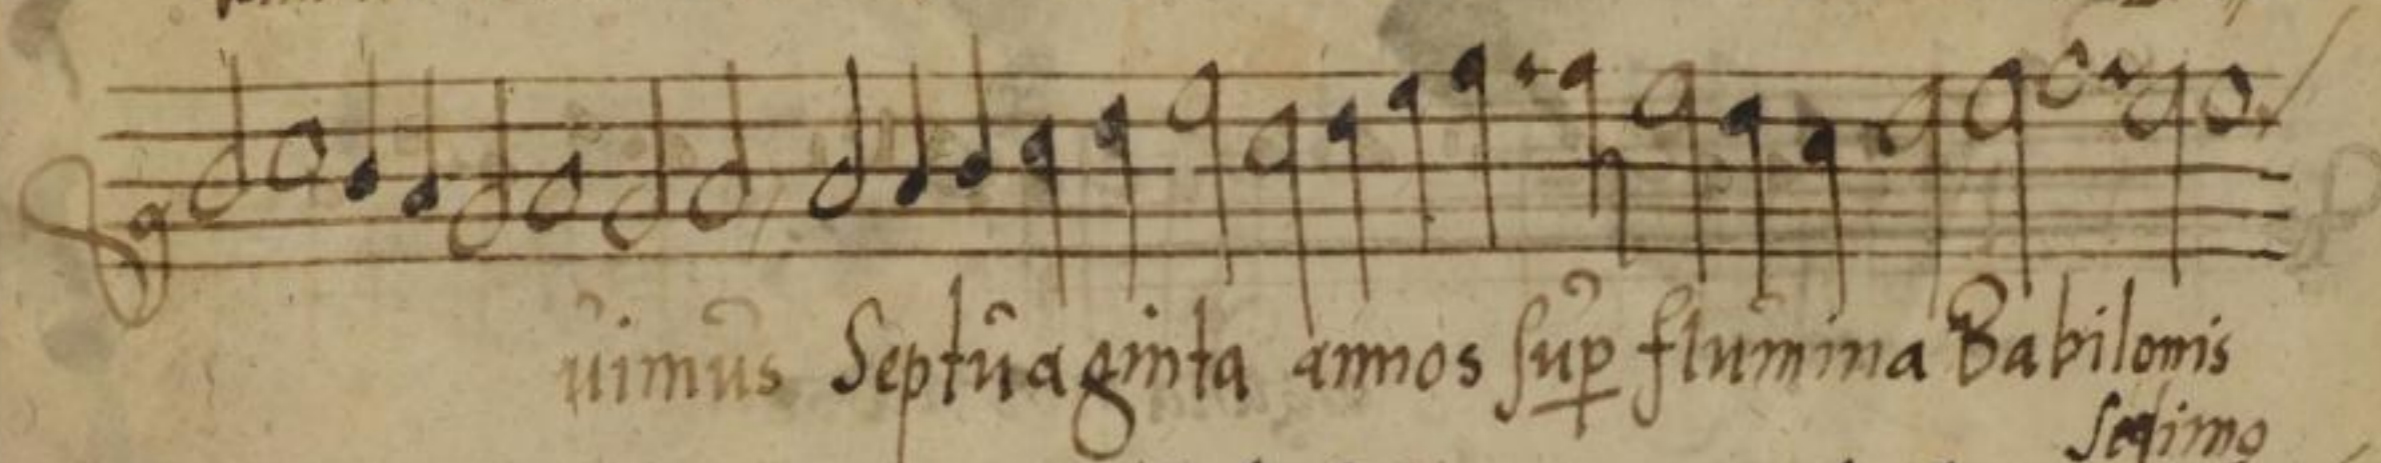 uimus Septuaginta annos sup flumina Babilonis